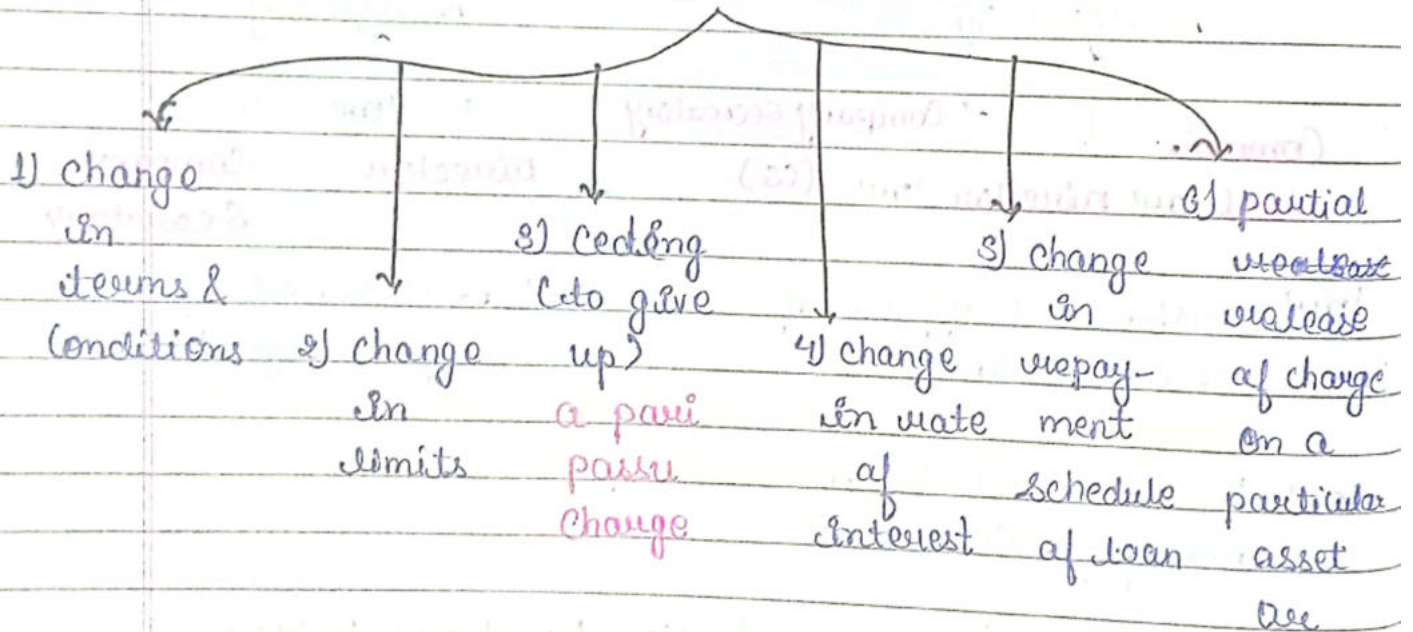 1) Change
in
terms &
Conditions
2) Change
in
limits
3) Ceding
(to give
up)
a pari
passu
Charge
4) Change
in rate
of
interest
5) Change
in
repay-
ment
schedule
of loan
6) partial
release
of charge
on a
particular
asset
or